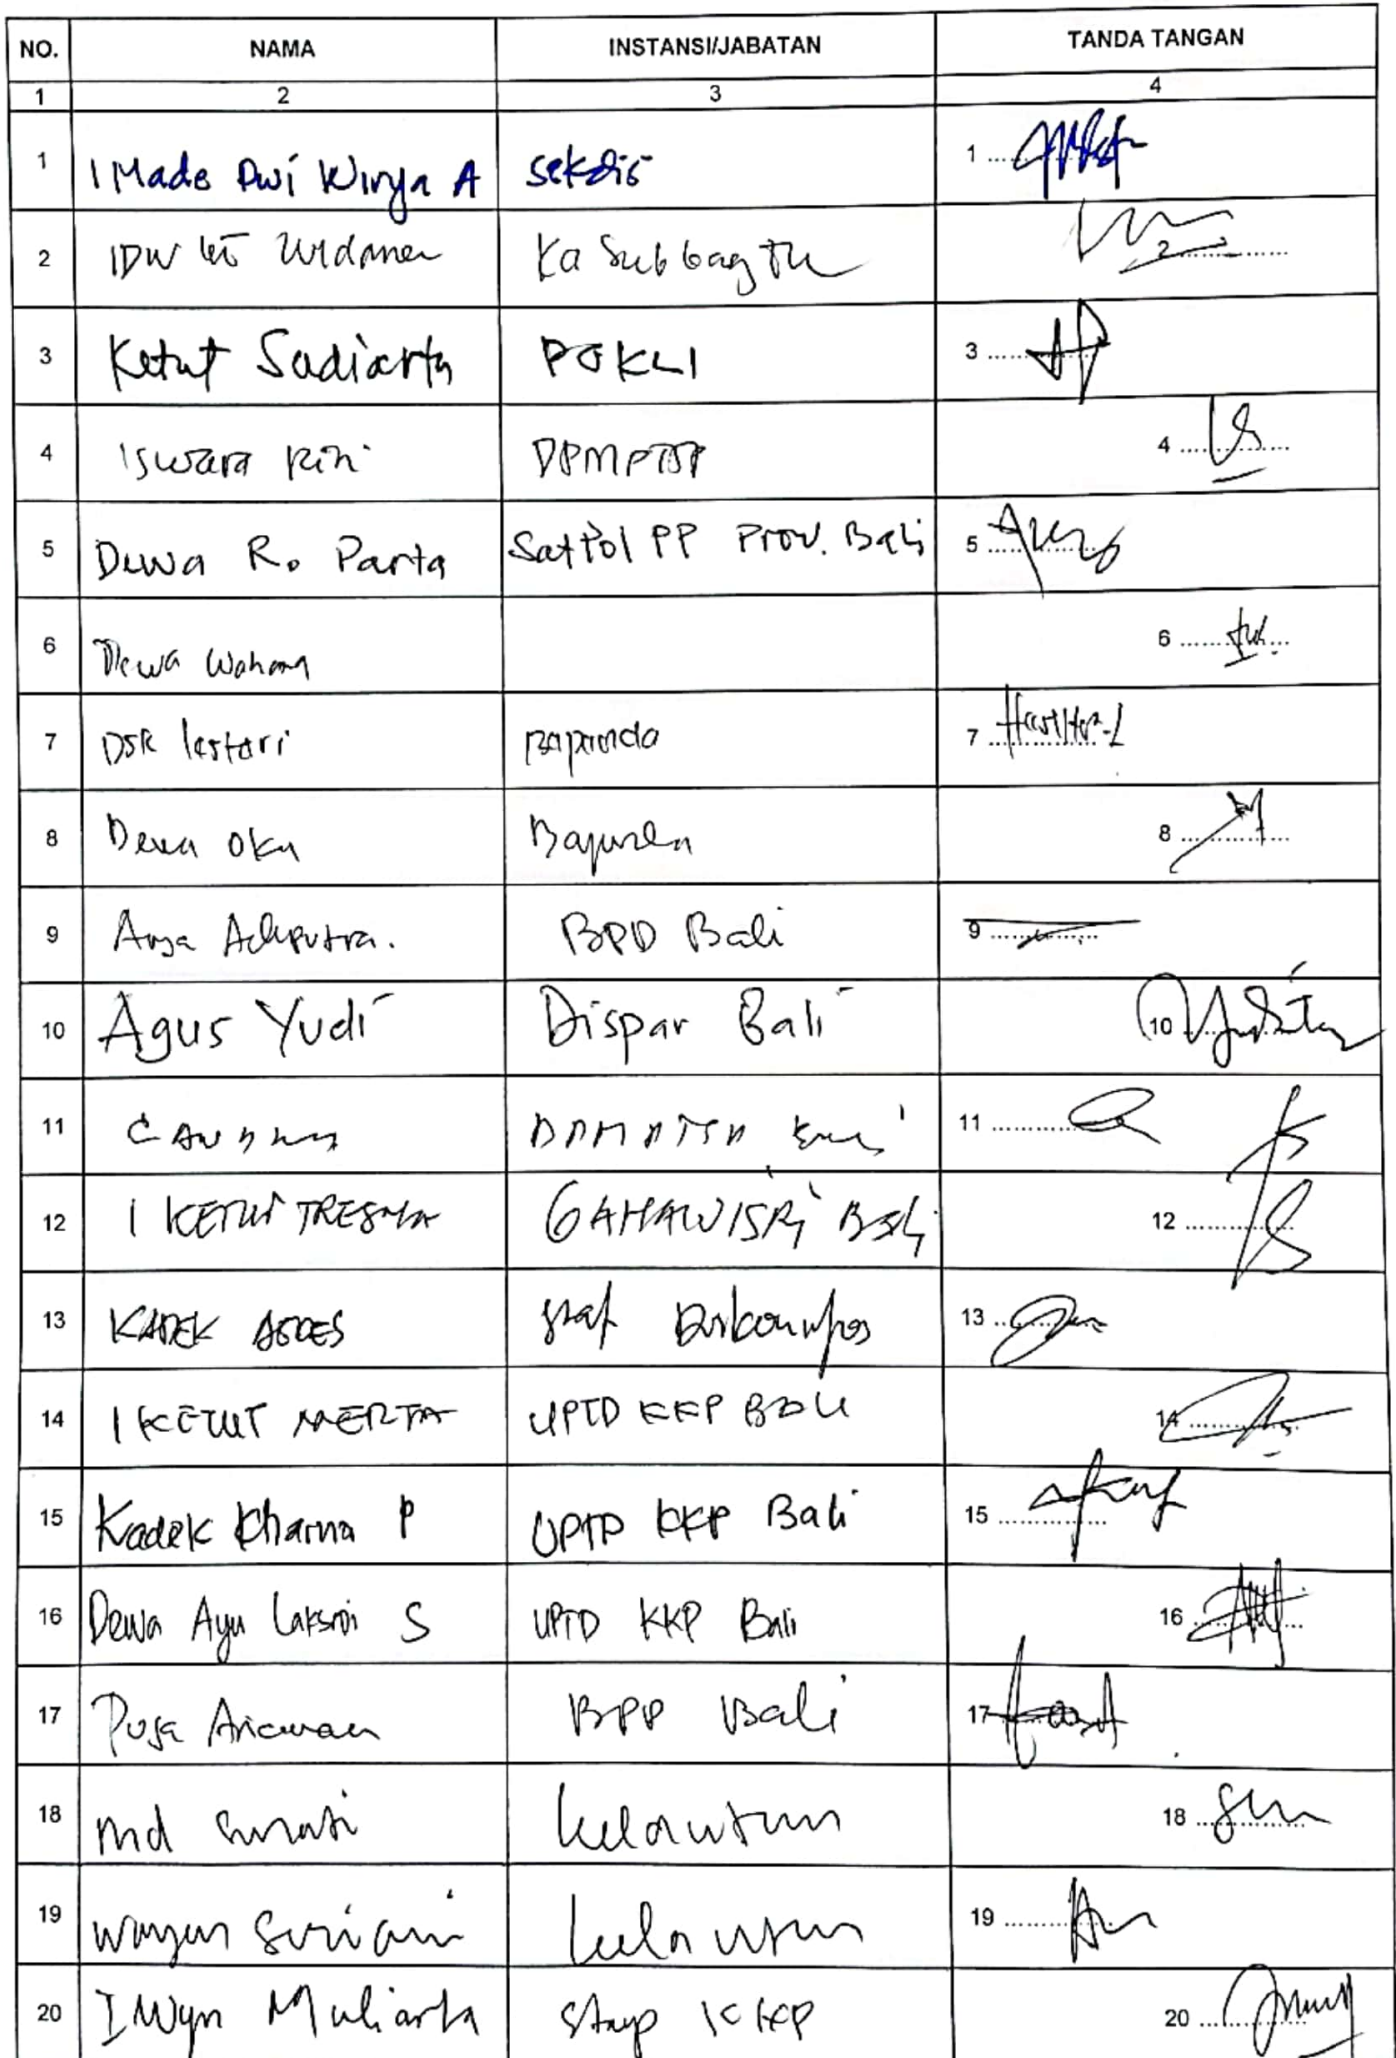 NO. NAMA INSTANSI/JABATAN TANDA TANGAN
1 2 3 4
1 I Made Dwi Wirya A sekdis 1
2 IDW Kt Widana Ka Subbag TU 2
3 Ketut Sudiarta POKLI 3
4 Iswara Rini DPMPTSP 4
5 Dewa R. Parta Satpol PP Prov. Bali 5
6 Dewa 6
7 DSK lestari Bapenda 7
8 Dewa Oka Bapenda 8
9 Arya Adiputra. BPD Bali 9
10 Agus Yudi Dispar Bali 10
11 11
12 I KETUT TRESNA GAHAWISRI Bali 12
13 KADEK staf 13
14 I KETUT MERTA UPTD KKP Bali 14
15 Kadek Kharma P UPTD KKP Bali 15
16 Dewa Ayu Laksmi S UPTD KKP Bali 16
17 Puja Ariawan BPD Bali 17
18 md kelautan 18
19 wayan Suriani kelautan 19
20 I Wyn Muliarta Stap KKP 20